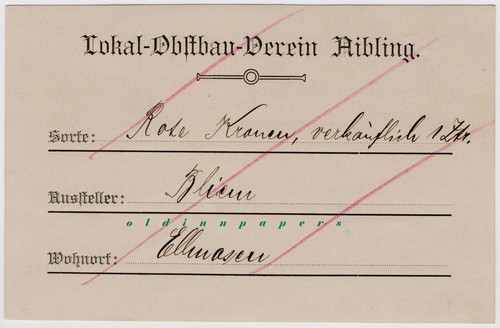 Lokal-Obstbau-Verein Aibling.
Sorte: Rote Kronen, verkäuflich 1 Ztr.
Aussteller: Bliem
oldinnpapers
Wohnort: Ellmosen